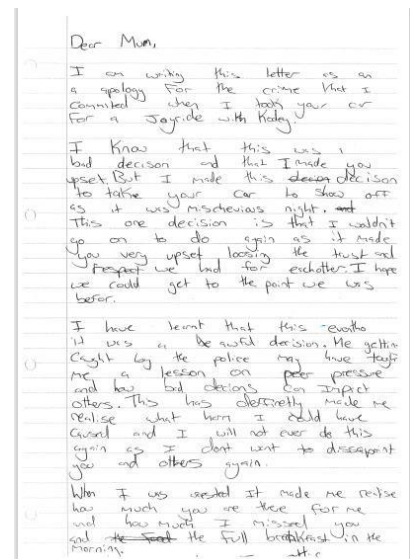 Dear Mum,
I am writing this letter as an
a apology For the crime that I
Commited when I took your car
For a Joyride with Kodey.
I Know that this was
bad decison and that I made you
upset. But I made this decison
to take your Car to show off
as it was mischevious night.
This one decision is that I wouldn't
go on to do again as it made
you very upset loosing the trust and
respect we had for eachother. I hope
we could get to the point we was
befor.
I have learnt that this evontho
it was a be awful decision. Me gettin
Caught by the police may have
me a lesson on peer pressure
and how bad decions Can impact
others. This has definetly made me
realise what harm I could have
caused and I will not ever do this
again as I dont want to dissapoint
you and others again.
When I was arested It made me realise
how much you are there for me
and how much I missed you
and the full breakfast in the
morning.